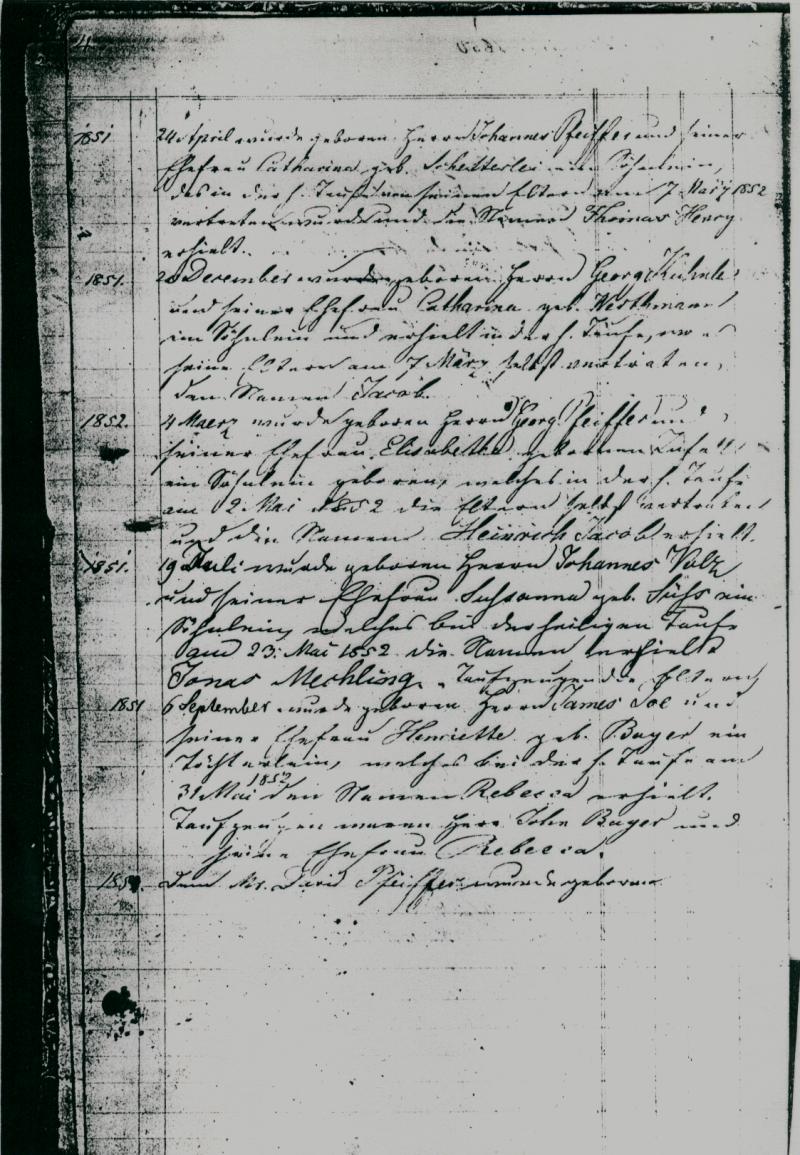 1851 24 April wurde geboren Herrn Johannes Pfeiffer und seiner
Ehefrau Catharina geb. ein Söhnlein,
das in der h. Taufe von seinen Eltern am 7 März 1852
vertreten wurde und die Namen Thomas Henry
erhielt.
1851. December wurde geboren Herrn Georg Kuhnle
und seiner Ehefrau Catharina geb. Wirthmann
ein Söhnlein und erhielt in der h. Taufe, wo
seine Eltern am 7 März selbst vertraten,
den Namen Jacob.
1852. 4 Maerz wurde geboren Herrn Georg Pfeiffer und
seiner Ehefrau Elisabetha gebornen
ein Söhnlein geboren, welches in der h. Taufe
am 2. Mai 1852 die Eltern selbst vertraten
und die Namen Heinrich Jacob erhielt.
1851. 19 Juli wurde geboren Herrn Johannes Volz
und seiner Ehefrau Susanna geb. Süss ein
Söhnlein, welches bei der heiligen Taufe
am 23. Mai 1852 die Namen erhielt
Jonas Mechling. Taufzeugen die Eltern
1851 6 September wurde geboren Herrn James und
seiner Ehefrau Henriette geb. Bayer ein
Töchterlein, welches bei der h. Taufe am
31. Mai 1852 den Namen Rebecca erhielt.
Taufzeugen waren Herr John Bayer und
seine Ehefrau Rebecca.
Dem Mr. David Pfeiffer wurde geboren